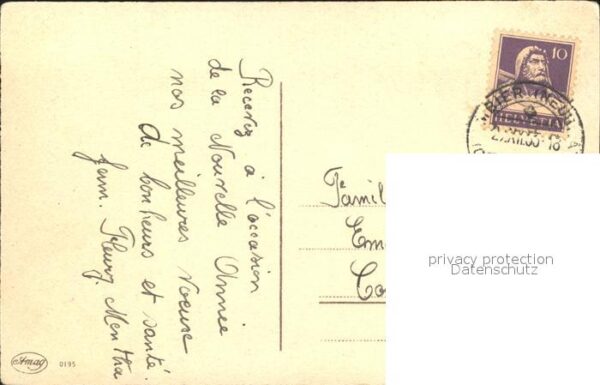 Recevez à l'occasion
de la Nouvelle Année
nos meilleures voeuxe
de bonheurs et santé.
fam. Fleury, Mentha
10
HELVETIA
Famil
Em
Co
privacy protection
Datenschutz
Amag
0195